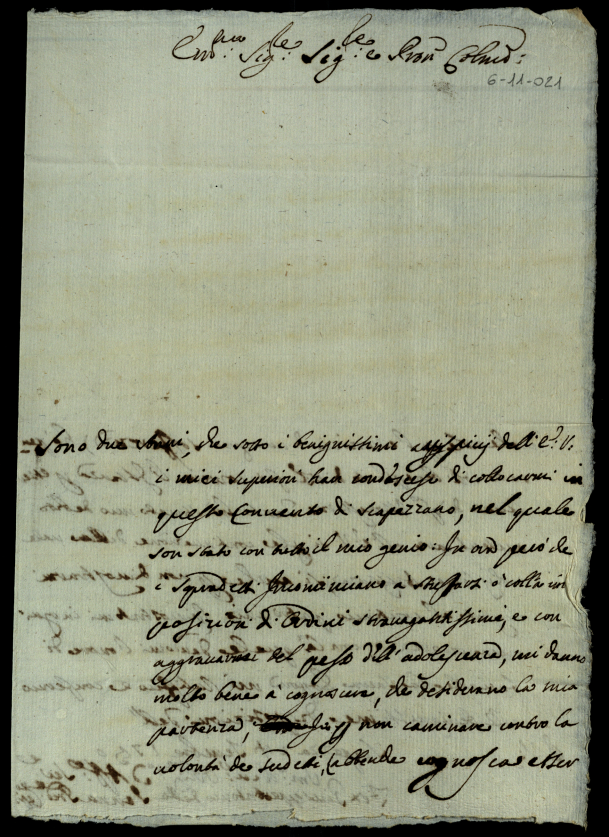 Em.mo Sig.re Sig.re e Pron Colmo:
6-11-021
Sono due anni, che sotto i benignissimi auspicij dell'E.a V.
i miei Superiori han condescese di collocarmi in
questo Convento di Scapezzano, nel quale
son stato con tutto il mio genio: In ora però che
i sopradetti Incominciano a stuffarsi o colla im
posizion di Ordini stravagantissimi, e con
aggravarmi del peso dell'adolescenza, mi danno
molto bene a cognoscere, che desiderano la mia
partenza, Io non caminare contro la
volontà de sudetti, (abbenche cognosca esser